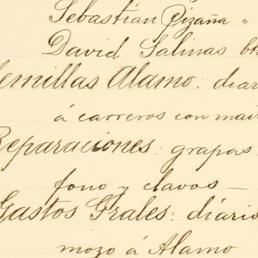 Sebastián Pizaña "
David Salinas
Semillas Alamo: diar
á carreros con mai
Reparaciones: grapas
fono y clavos —
Gastos Grales: diario
mozo á Alamo